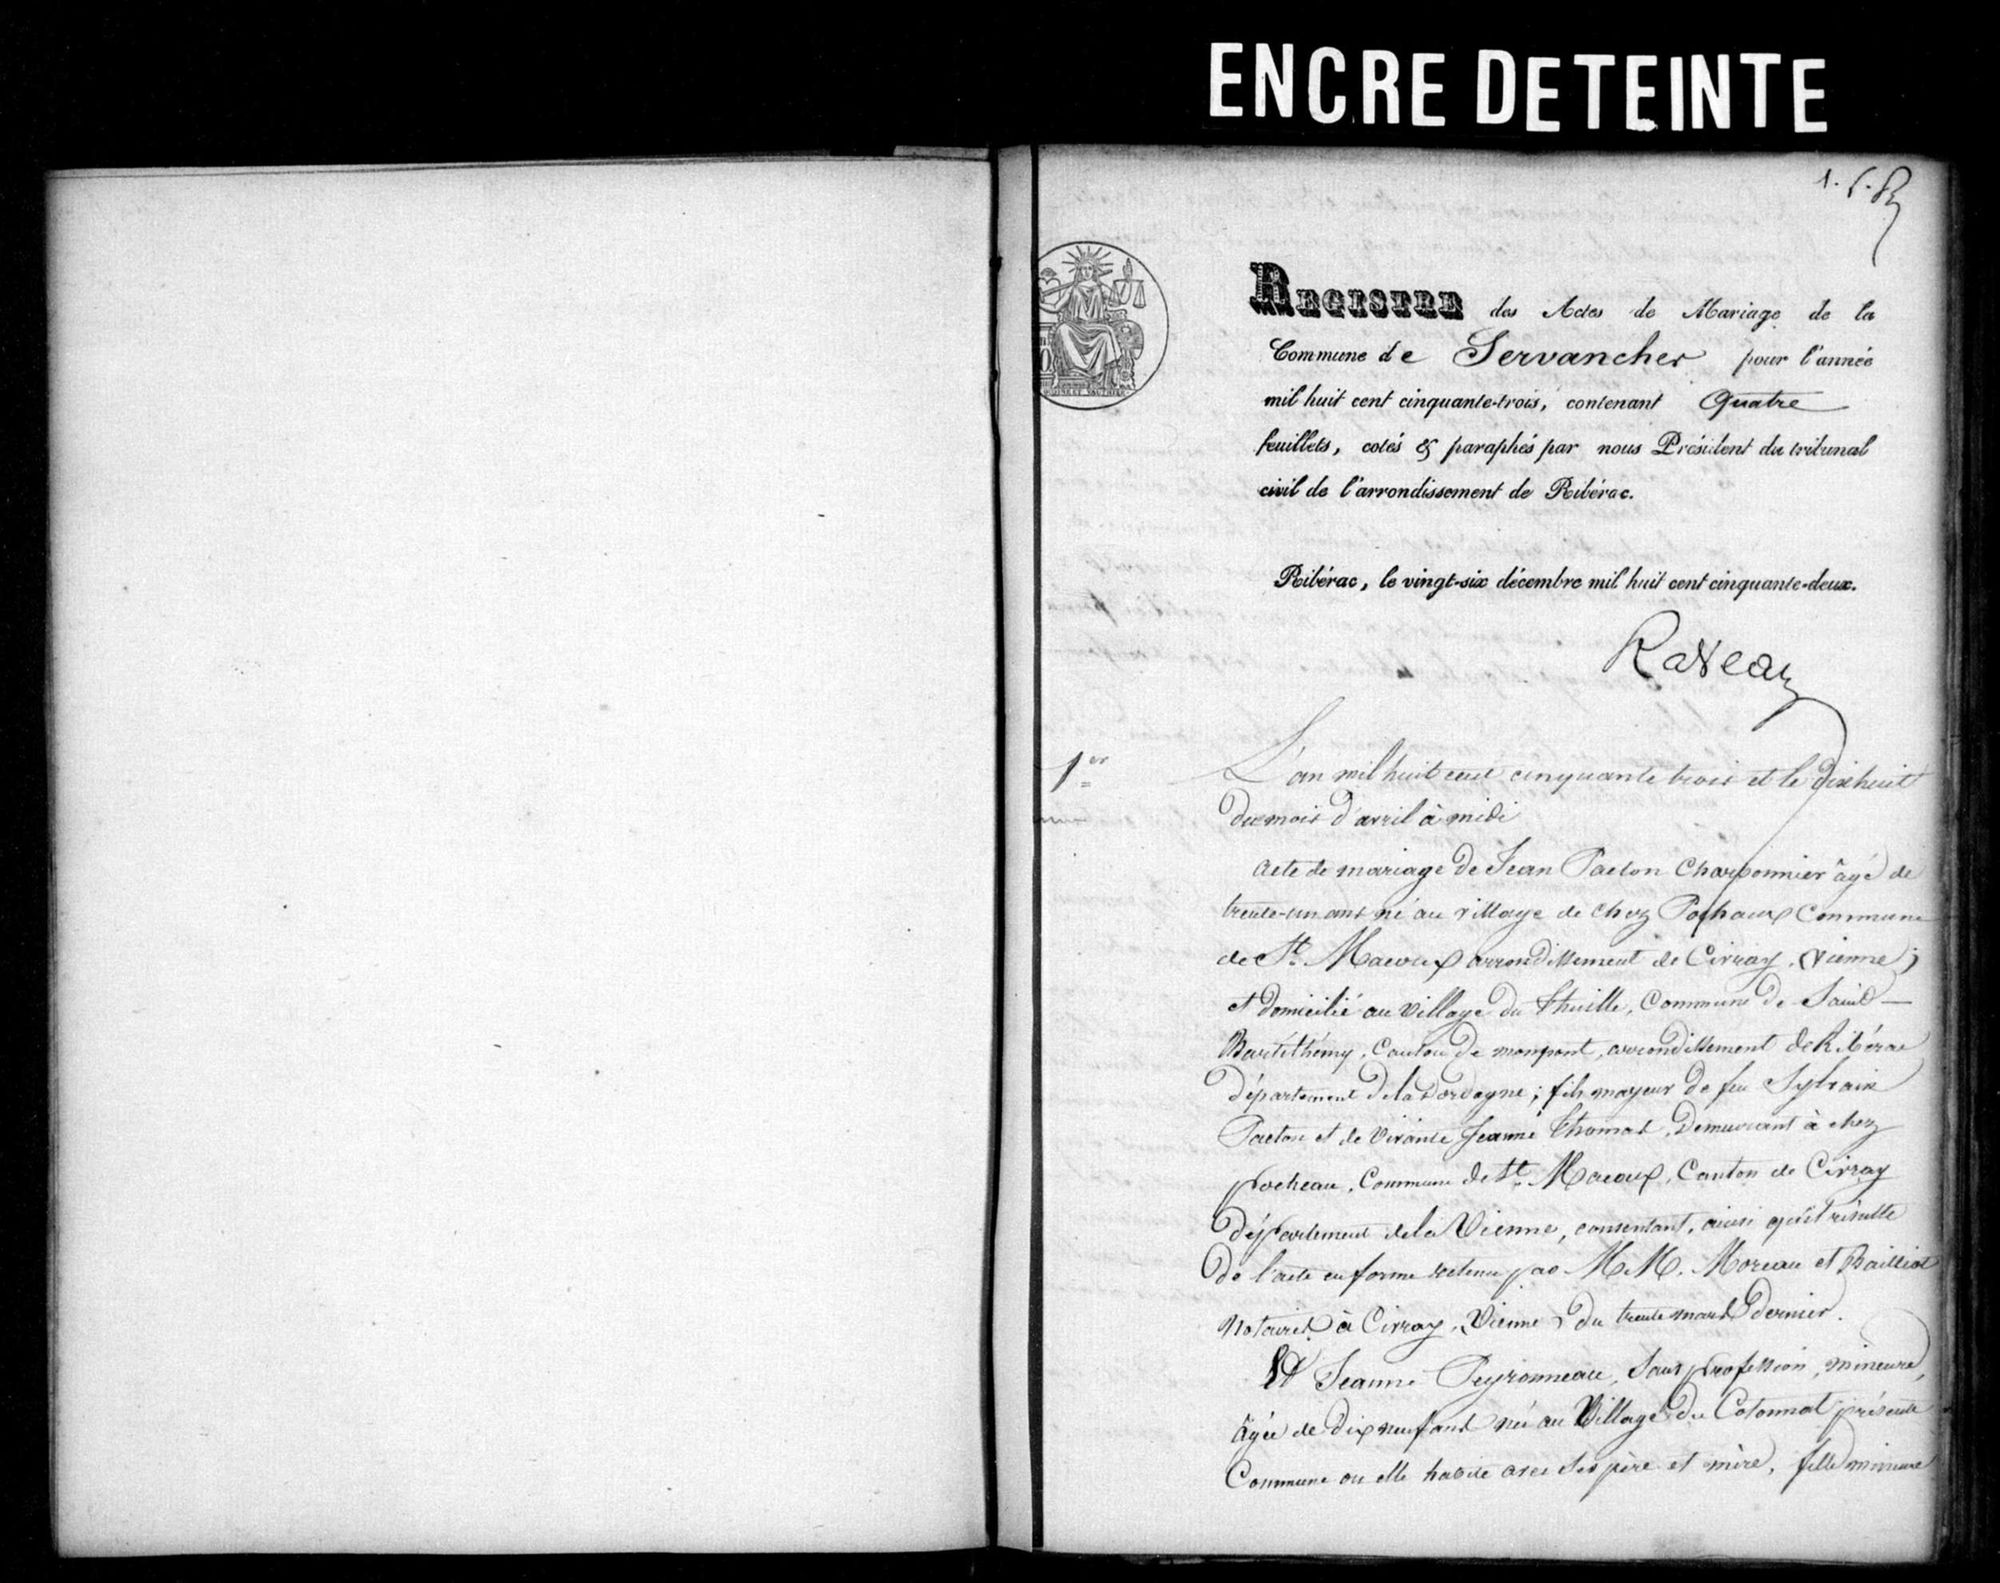 ENCRE DETEINTE
REGISTRE des Actes de Mariage de la
Commune de Servanches pour l'année
mil huit cent cinquante-trois, contenant Quatre
feuillets, cotés & paraphés par nous Président du tribunal
civil de l'arrondissement de Ribérac.
Ribérac, le vingt-six décembre mil huit cent cinquante-deux.
Rateau
1er
L'an mil huit cent cinquante trois et le dix huit
du mois d'avril à midi
acte de mariage de Jean Paeton Charbonnier âgé de
trente-un ans né au village de chez Commune
de St. Macoux arrondissement de Civray, (Vienne)
et domicilié au village du Thuille, Commune de Saint-
Barthélhémy, Canton de monpont, arrondissement de Ribérac
département de la Dordogne; fils mayeur de feu Sylvain
Paeton et de vivante Jeanne Thomas, Demeurant à chez
pocheau, Commune de St. Macoux, Canton de Civray
département de la Vienne, consentant, ainsi qu'il résulte
de l'acte en forme retenu par M.M. Moreau et Bailliot
Notaires à Civray, Vienne, du trente mars dernier.
Et Jeanne Peyronneau, sans profession, mineure,
âgée de dix neuf ans née au Village du Colonnat présente
Commune ou elle habite avec ses père et mère, fille mineure